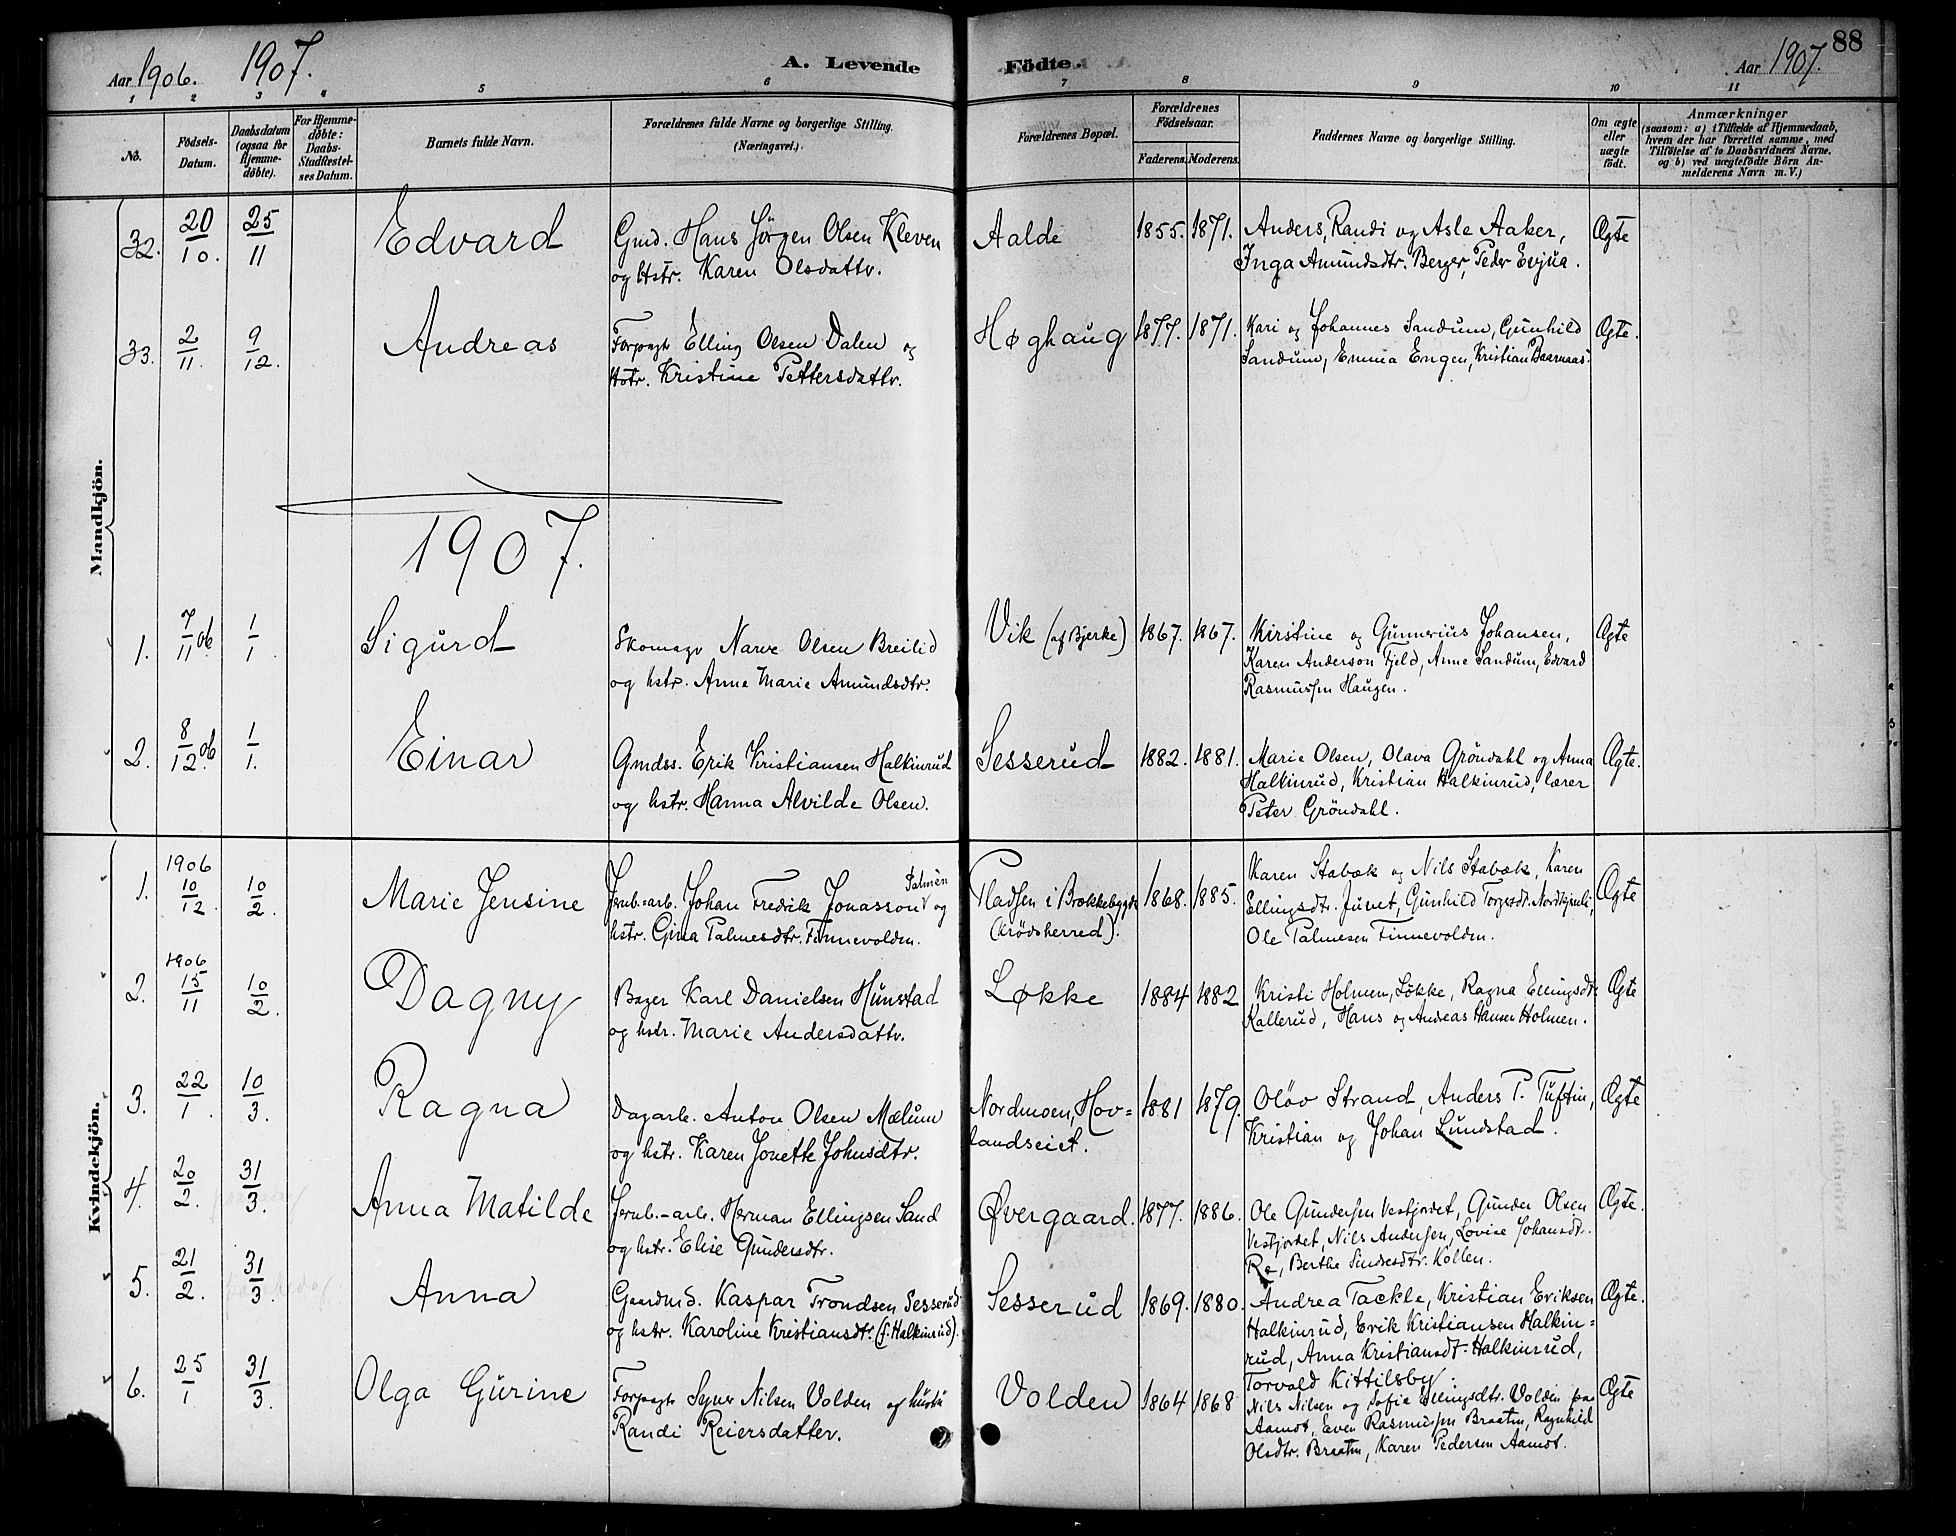 Aar 1906. 1907. A. Levende Födte. Aar 1907. 88
1 2 3 4 5 6 7 8 9 10 11
No.
Födsels-
Datum.
Daabsdatum
(ogsaa för
Hjemme-
döbte).
For Hjemme-
döbte:
Daabs-
Stadfæstel-
ses Datum.
Barnets fulde Navn.
Forældrenes fulde Navne og borgerlige Stilling.
(Næringsvei.)
Forældrenes Bopæl.
Forældrenes
Födselsaar.
Faderens. Moderens.
Faddernes Navne og borgerlige Stilling.
Om ægte
eller
uægte
födt.
Anmærkninger
(saasom: a) i Tilfælde af Hjemmedaab,
hvem der har forrettet samme, med
Tilföielse af to Daabsvidners Navne,
og b) ved uægtefödte Börn An-
melderens Navn m. V.)
Mandkjön.
32. 20/10. 25/11 Edvard Gmd. Hans Jörgen Olsen Kleven Aalde 1855. 1871. Anders, Randi og Asle Aaker, Ægte
og Hstr. Karen Olsdattr. Inga Amundsdtr. Berger, Peder Evjua.
33. 2/11. 9/12. Andreas Forpagtr Elling Olsen Dalen og Høghaug 1877. 1871. Kari og Johannes Sandum, Gunhild Ægte.
Hstr. Kristine Pettersdattr. Sandum, Emma Engen, Kristian Baarnaas.
1907.
1. 7/11 06. 1/1 Sigurd Skomagr Narve Olsen Breilid Vik (af Bjerke) 1867. 1867. Kirstine og Gunnerius Johansen, Ægte
og hstr. Anne Marie Amundsdtr. Karen Anderson Fjeld, Anne Sandum, Edvard
Rasmussen Haugen.
2. 8/12 06. 1/1. Einar Gmdss. Erik Kristiansen Halkinrud Sesserud 1882. 1881. Marie Olsen, Olava Gröndahl og Anna Ægte.
og hstr. Hanna Alvilde Olsen. Halkinrud, Kristian Halkinrud, lærer
Peter Gröndahl.
Kvindekjön.
1. 1906 10/12. 10/2. Marie Jensine Jernb.-arb. Johan Fredrik Jonasson Palmén og Pladsen i Brokkebygda 1868. 1885. Karen Stabæk og Nils Stabæk, Karen Ægte
hstr. Gina Palmesdtr. Finnevolden. (Krödsherred). Ellingsdtr. Juvet, Gunhild Torgersdt. Nordkjenli,
Ole Palmesen Finnevolden.
2. 1906 15/11 10/2. Dagny Bager Karl Danielsen Hunstad Løkke 1884 1882 Kristi Holmen, Løkke, Ragna Ellingsdtr. Ægte
og hstr. Marie Andersdattr. Kallerud, Hans og Andreas Hansen Holmen.
3. 22/1. 10/3. Ragna Dagarb. Anton Olsen Mælum Nordmoen, Hov= 1881 1879. Olöv Strand, Anders P. Tuftin, Ægte
og hstr. Karen Jonette Johnsdtr. landseiet. Kristian og Johan Lundstad.
4. 20/2. 31/3. Anna Matilde Jernb.-arb. Herman Ellingsen Sand Øvergaard. 1877. 1886. Ole Gundersen Vestjordet, Gunder Olsen Ægte.
og hstr. Elise Gundersdtr. Vestjordet, Nils Andersen, Lovise Johansdtr.
Ro, Berthe Kollen.
5. 21/2. 31/3. Anna Gaardmd. Kaspar Trondsen Sesserud Sesserud 1869. 1880. Andrea Tackle, Kristian Eriksen Ægte.
og hstr. Karoline Kristiansdtr. (f. Halkinrud). Halkinrud, Erik Kristiansen Halkin=
rud, Anna Kristiansdt. Halkinrud,
Torvald Kittilsby.
6. 25/1 31/3. Olga Gurine Forpagtr Syver Nilsen Volden og hustru Volden 1864 1868 Nils Nilsen og Sofie Ellingsdtr. Volden paa Ægte
Randi Reiersdatter. Aamot, Even Rasmussen Braaten, Ragnhild
Olsdtr. Braaten, Karen Pedersen Aamot.